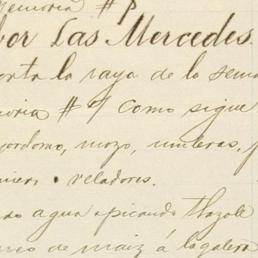 Memoria # 9
por Las Mercedes.
orta la raya de la sema
moria # 9 como sigue
yordomo, mozo, muleras,
veladores.
do agua y picando tlazole
de maiz á la galera